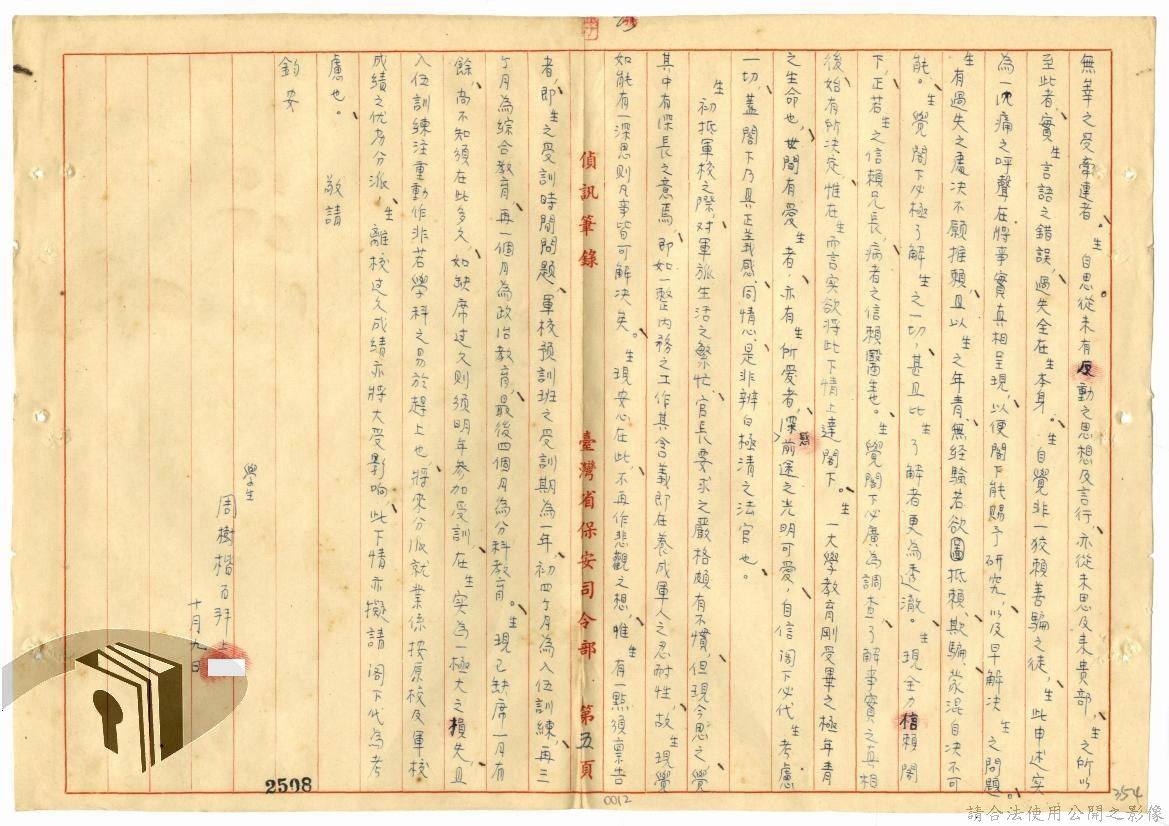 無辜之受牽連者。生自思從未有反動之思想及言行，亦從未思及未貴部、生之所以
至此者，實生言語之錯誤，過失全在生本身。生自覺非一狡賴善騙之徒，生此申述实
為一沈痛之呼聲在將事實真相呈現，以便閣下能賜予研究，以及早解決生之問題。
生有過失之處决不願推賴，且以生之年青，無經驗若欲圖抵賴、欺騙、蒙混自决不可
能。生覺閣下必極了解生之一切，甚且比生了解者更為透澈。生現全力信賴閣
下，正若生之信賴兄長，病者之信賴醫生也。生覺閣下必廣為調查了解事實之真相
後，始有所決定，惟在生而言实欲將此下情上達閣下。生一大學教育剛受畢之極年青
之生命也，世間有愛生者，亦有生所愛者，深感前途之光明可愛，自信閣下必代生考慮
一切，蓋閣下乃具正義感，同情心，是非辨白極清之法官也。
生初抵軍校之際，对軍旅生活之繁忙，官長要求之嚴格頗有不慣，但現今思之，覺
其中有深長之意焉，即如一整內務之工作其含義即在養成軍人之忍耐性，故生現覺
如能有一深思則凡事皆可解决矣。生現安心在此，不再作悲觀之想，惟生有一點須稟告
偵訊筆錄 臺灣省保安司令部 第五頁
者，即生之受訓時間問題，軍校預訓班之受訓期為一年，初四个月為入伍訓練，再三
个月為綜合教育，再一個月為政治教育，最後四個月為分科教育。生現已缺席一月有
餘，尚不知須在此多久，如缺席过久則須明年参加受訓，在生实為一極大之損失，且
入伍訓練注重動作非若學科之易於趕上也，將來分派就業係按原校及軍校
成績之优劣分派，生離校过久成績亦將大受影响，此下情亦擬請 閣下代為考
慮也。 敬請
鈞安
學生
周樹楷力拜上
十月九日
2508
0012
354
請合法使用公開之影像